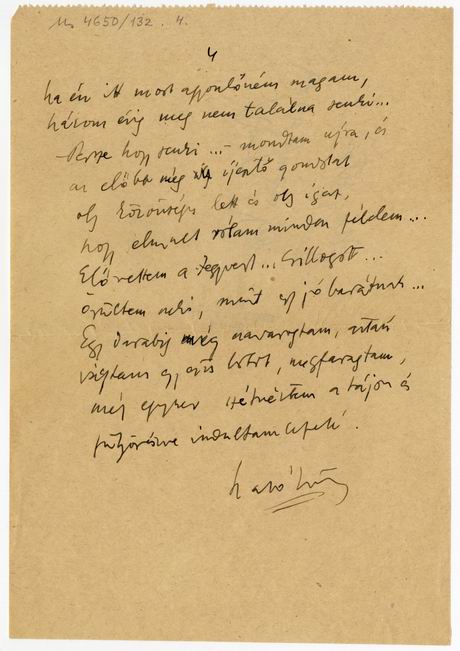 Ms 4650/132. 4.
4
ha én itt most agyonlőném magam,
három évig meg nem találna senki...
- Persze hogy senki... - mondtam újra, és
az előbb még ijesztő gondolat
oly közönséges lett és oly igaz,
hogy elmúlt rólam minden félelem...
Elővettem a fegyvert... Csillogott...
örültem neki, mint egy jó barátnak...
Egy darabig még
vágtam egy botot, megfaragtam,
még egyszer szétnéztem a tájon és
fütyörészve indultam lefelé.